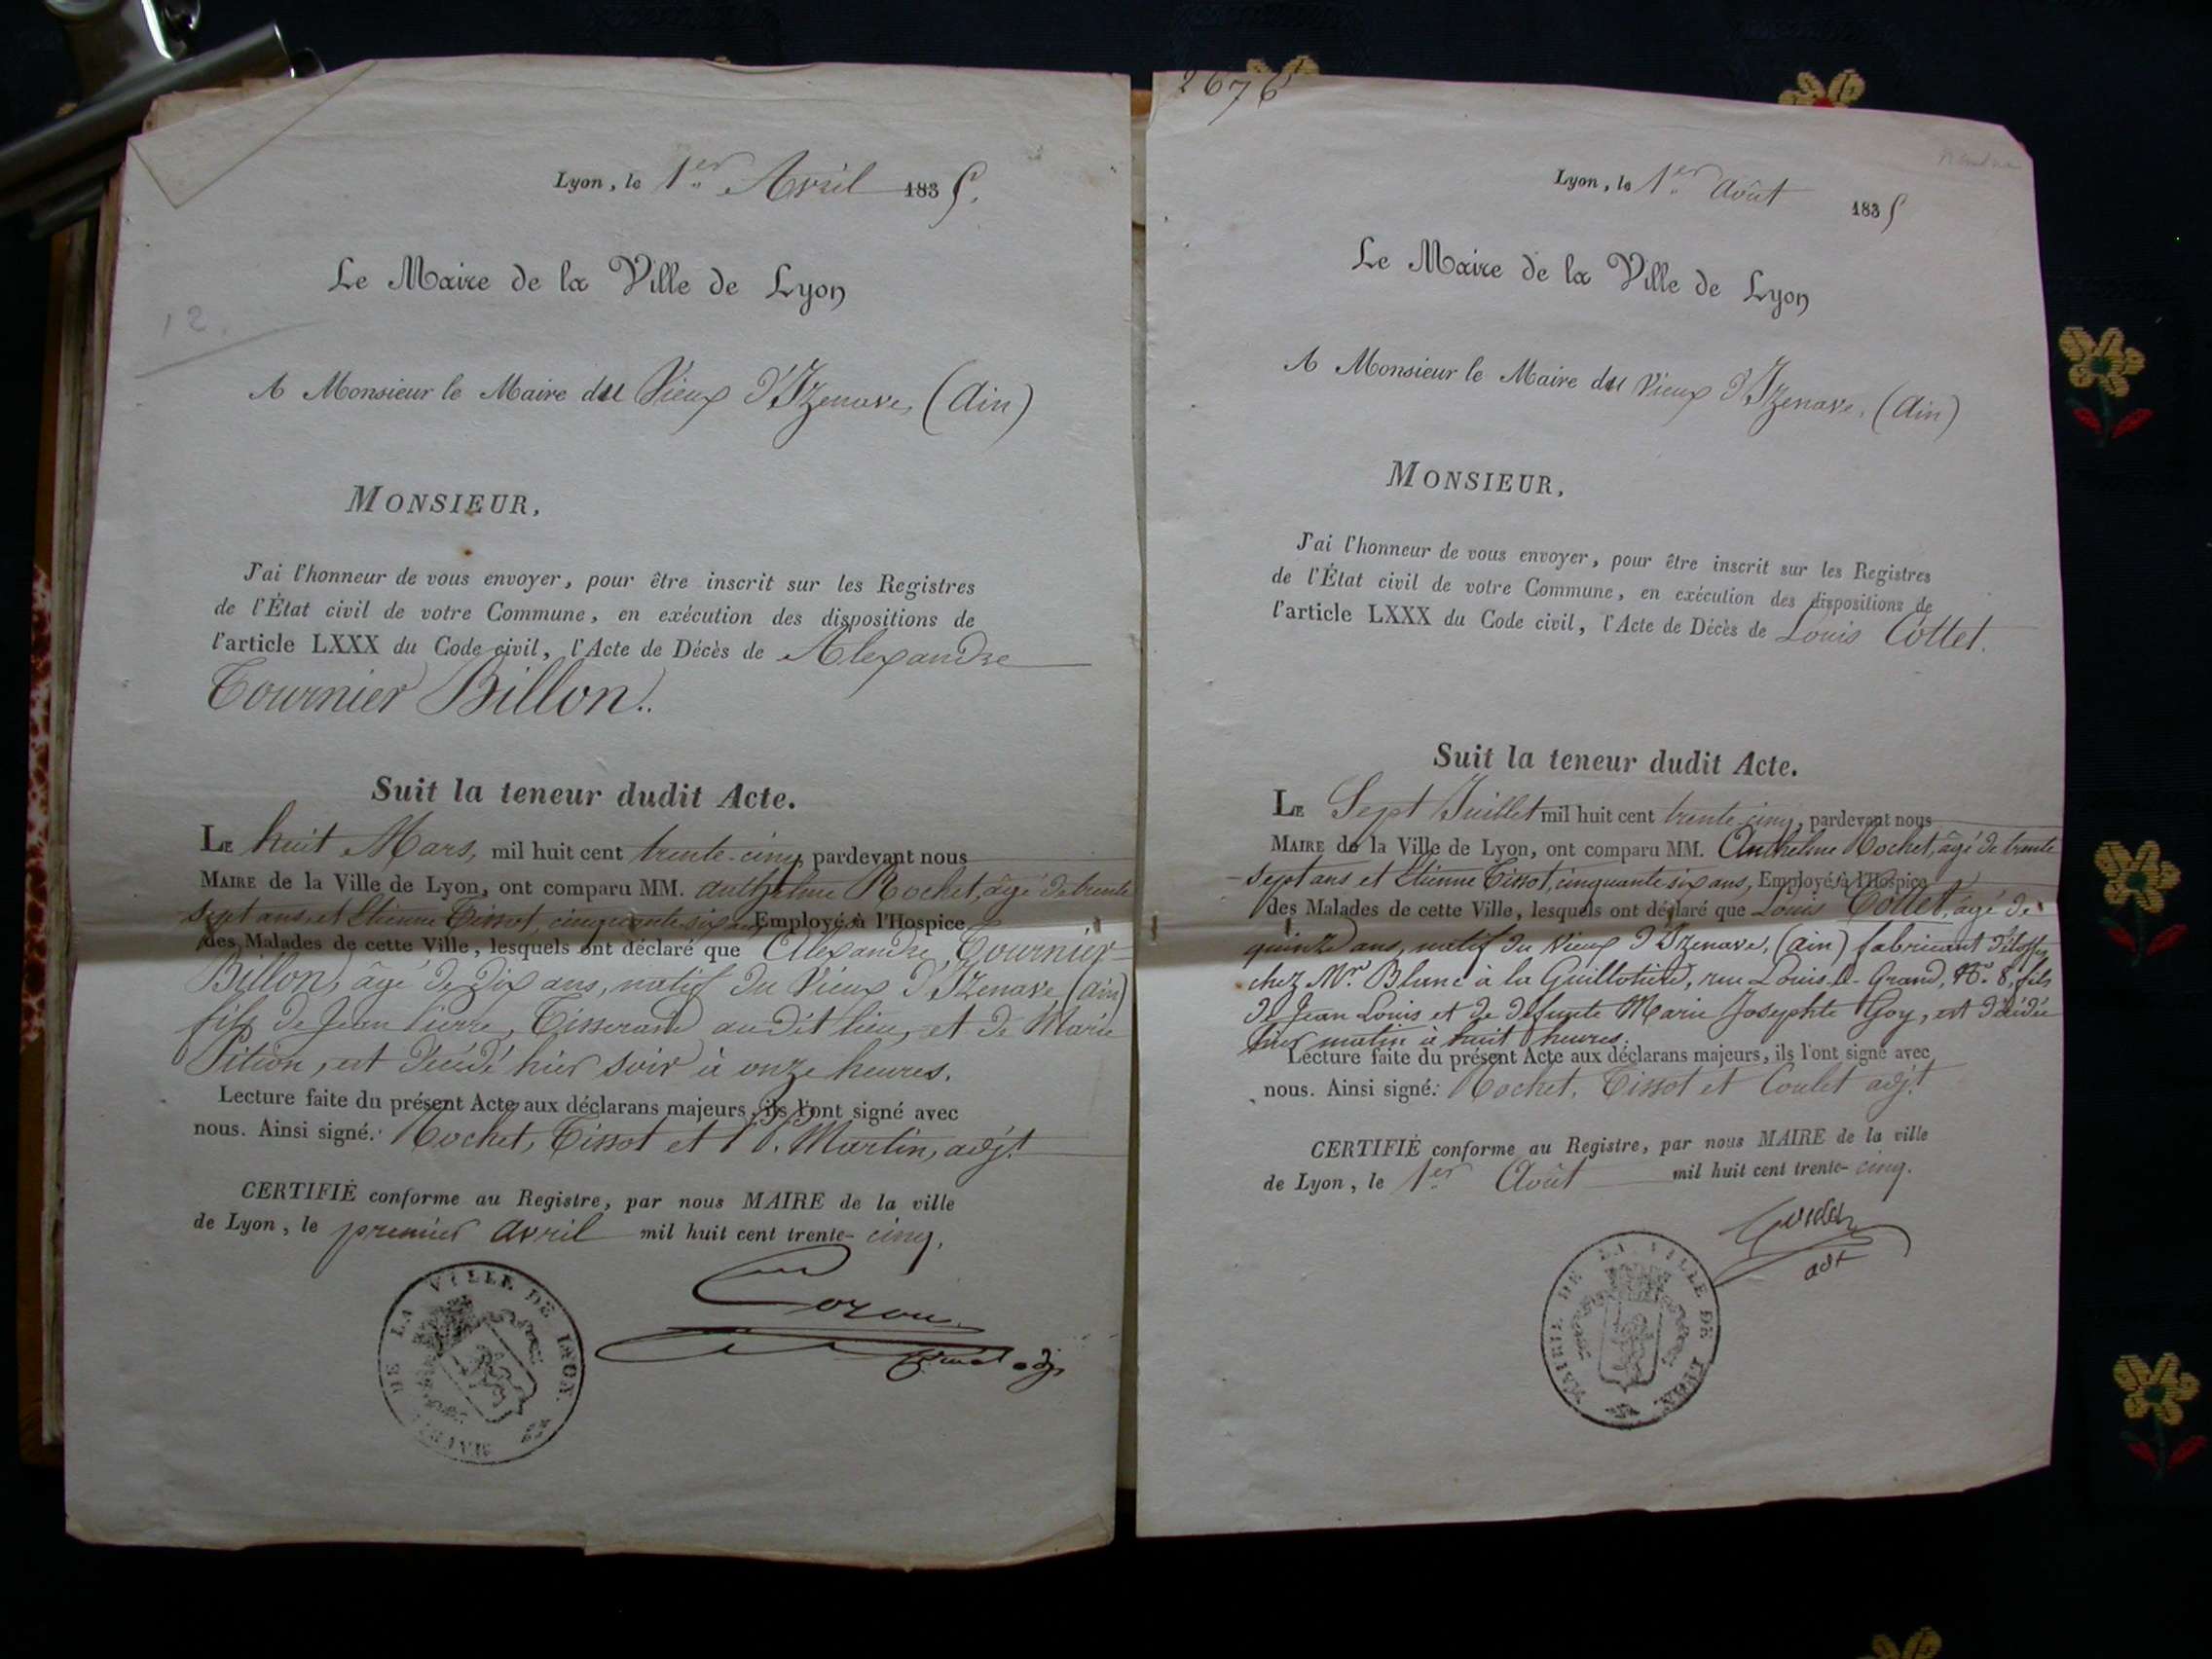 Lyon, le 1er Avril 1835.
Le Maire de la Ville de Lyon
12.
A Monsieur le Maire du Vieux d'Izenave, (Ain)
MONSIEUR,
J'ai l'honneur de vous envoyer, pour être inscrit sur les Registres
de l'État civil de votre Commune, en exécution des dispositions de
l'article LXXX du Code civil, l'Acte de Décès de Alexandre
Tournier Billon..
Suit la teneur dudit Acte.
LE huit Mars, mil huit cent trente-cinq pardevant nous
MAIRE de la Ville de Lyon, ont comparu MM. anthelme Rochet, âgé de trente
sept ans, et Etienne Tissot, cinquante six ans, Employés à l'Hospice
des Malades de cette Ville, lesquels ont déclaré que Alexandre Tournier-
Billon, âgé de dix ans, natif du Vieux d'Izenave (ain)
fils de Jean Pierre, Tisserand audit lieu, et de Marie
Pition, est décédé hier soir à onze heures.
Lecture faite du présent Acte aux déclarans majeurs, ils l'ont signé avec
nous. Ainsi signé: Rochet, Tissot et Martin, adj.t
CERTIFIÉ conforme au Registre, par nous MAIRE de la ville
de Lyon, le premier avril mil huit cent trente- cinq.
MAIRIE DE LA VILLE DE LYON
2676
Lyon, le 1er Août 1835
Le Maire de la Ville de Lyon
A Monsieur le Maire du Vieux d'Izenave, (Ain)
MONSIEUR,
J'ai l'honneur de vous envoyer, pour être inscrit sur les Registres
de l'État civil de votre Commune, en exécution des dispositions de
l'article LXXX du Code civil, l'Acte de Décès de Louis Cottet.
Suit la teneur dudit Acte.
LE Sept Juillet mil huit cent trente cinq, pardevant nous
MAIRE de la Ville de Lyon, ont comparu MM. Anthelme Rochet, âgé de trente
sept ans et Etienne Tissot, cinquante six ans, Employés à l'Hospice
des Malades de cette Ville, lesquels ont déclaré que Louis Cottet, âgé de
quinze ans, natif du Vieux d'Izenave, (ain) fabricant d'étoffes
chez Mr. Blanc à la Guillotière, rue Louis-le-Grand, N°. 8, fils
de Jean Louis et de défunte Marie Josephte Goy, est décédée
hier matin à huit heures.
Lecture faite du présent Acte aux déclarans majeurs, ils l'ont signé avec
nous. Ainsi signé: Rochet, Tissot et Coulet adj.t
CERTIFIÉ conforme au Registre, par nous MAIRE de la ville
de Lyon, le 1er Août mil huit cent trente- cinq.
adt
MAIRIE DE LA VILLE DE LYON